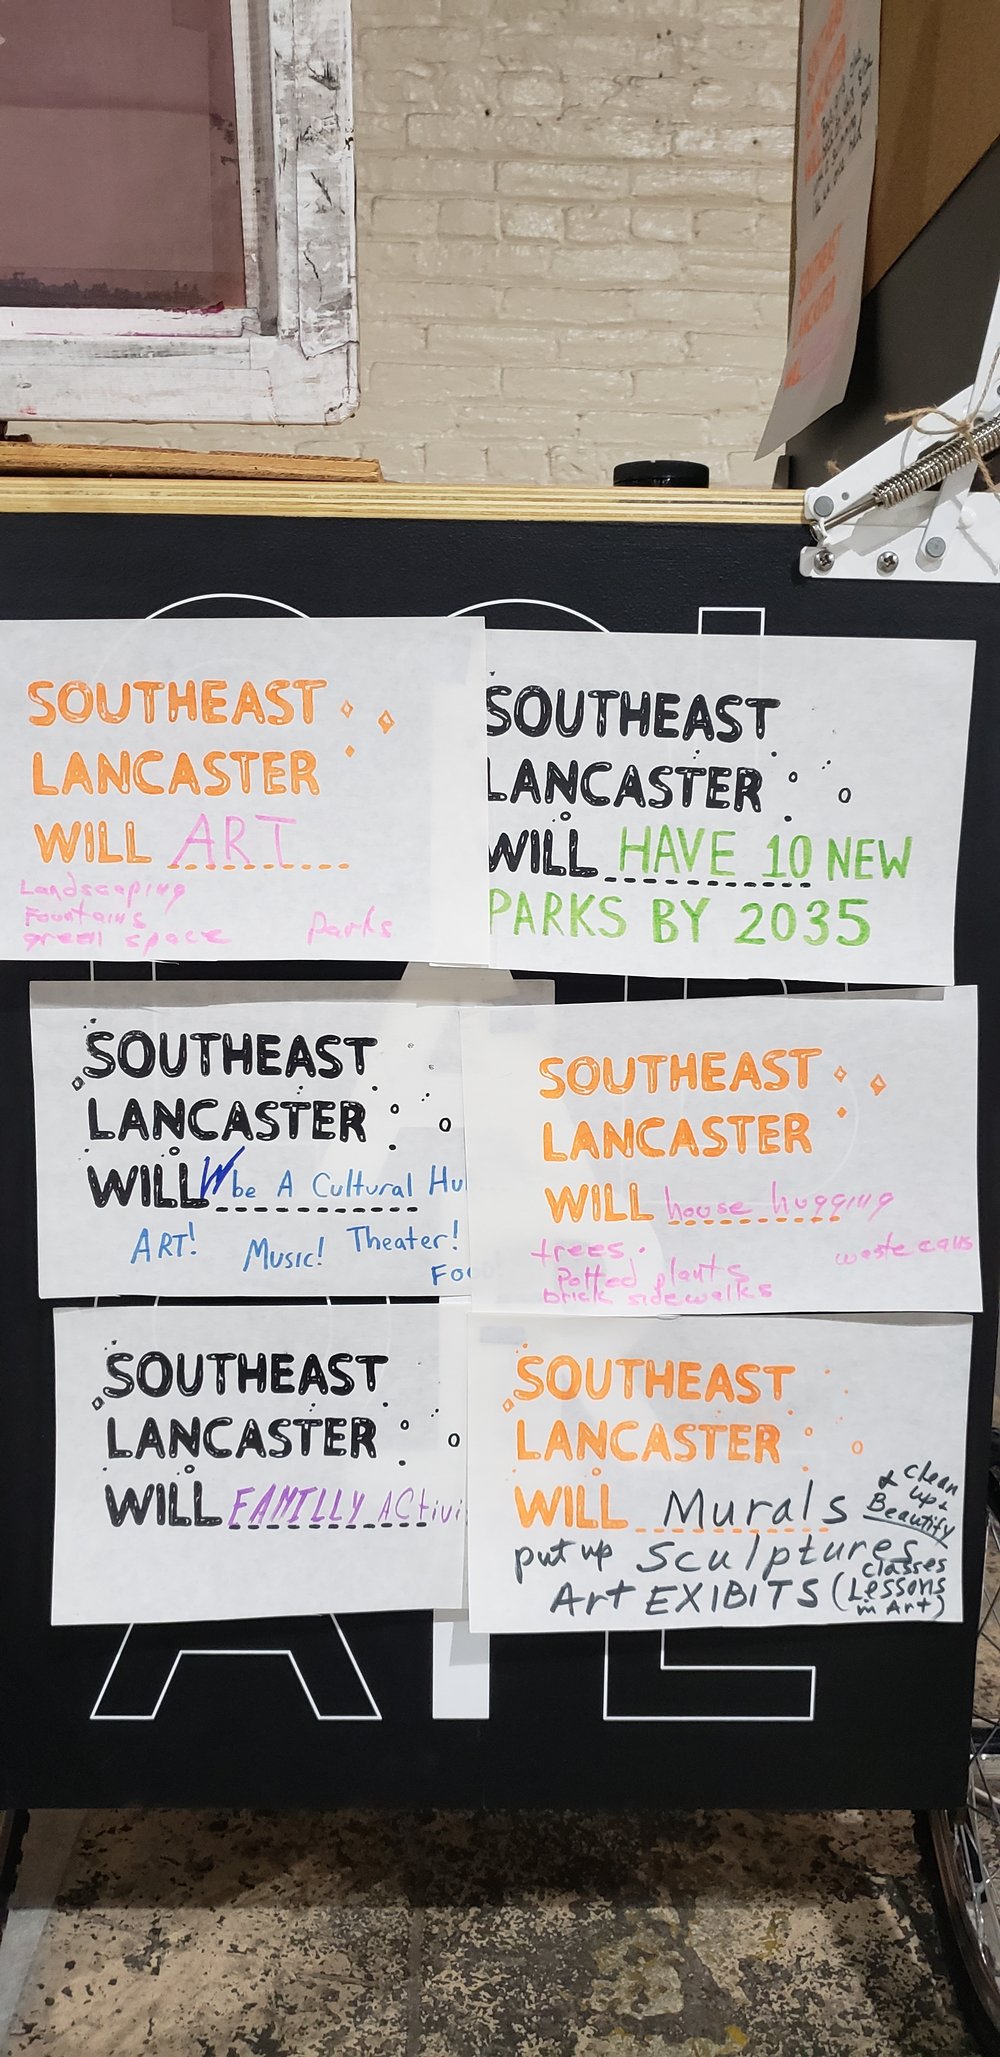 SOUTHEAST
LANCASTER
WILL ART
Landscaping
Fountains
green space Parks
SOUTHEAST
LANCASTER
WILL HAVE 10 NEW
PARKS BY 2035
SOUTHEAST
LANCASTER
WILL be A Cultural Hu
ART! Music! Theater!
Fo
SOUTHEAST
LANCASTER
WILL house hugging
trees. waste cans
Potted plants
brick sidewalks
SOUTHEAST
LANCASTER
WILL FAMILLY ACtivi
SOUTHEAST
LANCASTER
WILL Murals & clean
up &
Beautify
put up Sculptures
Art EXIBITS (classes
Lessons
in Art)
SOUTHEAST
LANCASTER
WILL
SOUTHEAST
LANCASTER
WILL